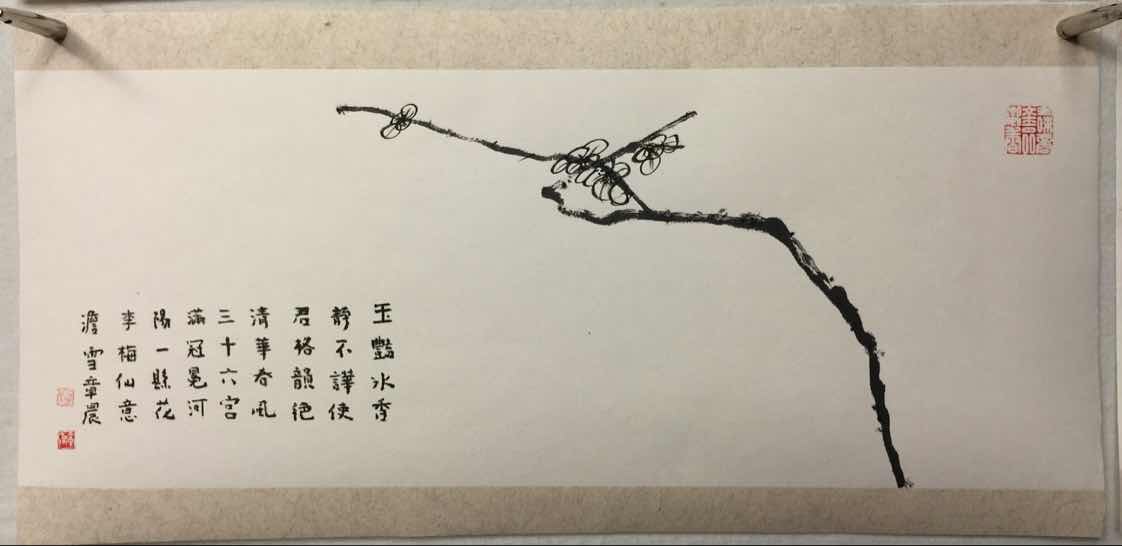 玉豔氷香
靜不譁使
君格韻絕
清華春風
三十六宮
滿冠冕河
陽一縣花
李梅仙意
澹雪章農